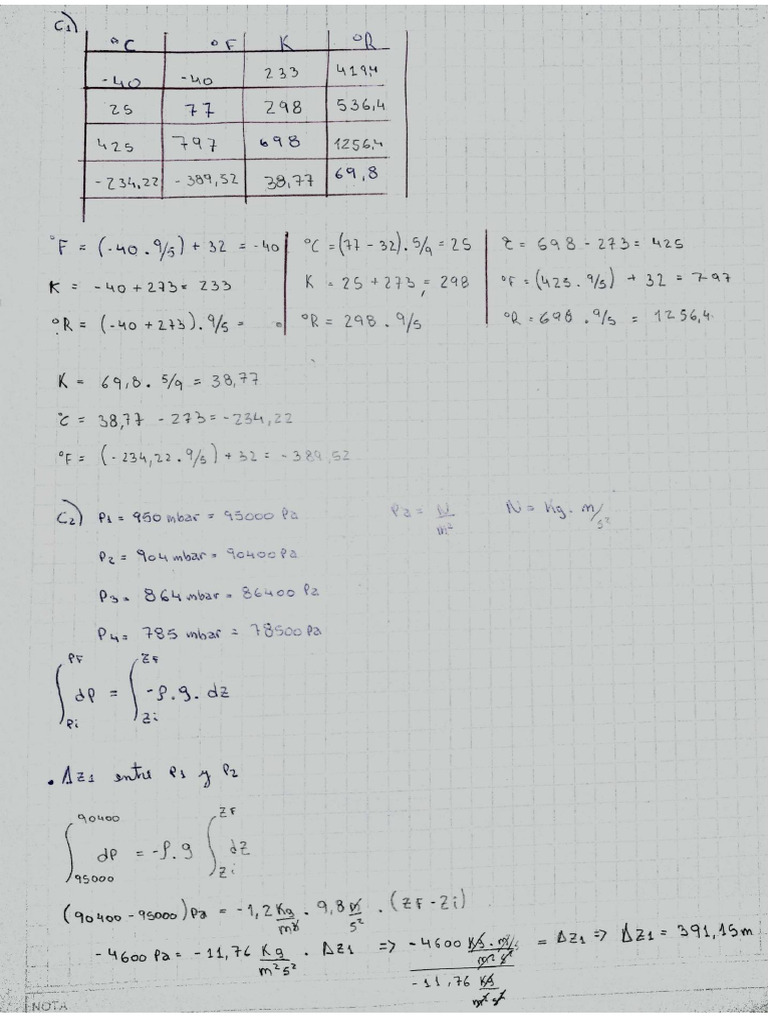 C1)
°C °F K °R
-40 -40 233 419,4
25 77 298 536,4
425 797 698 1256,4
-234,22 -389,52 38,77 69,8
°F = (-40 . 9/5) + 32 = -40 °C = (77 - 32) . 5/9 = 25 °C = 698 - 273 = 425
K = -40 + 273 = 233 K = 25 + 273 = 298 °F = (425 . 9/5) + 32 = 797
°R = (-40 + 273) . 9/5 = °R = 298 . 9/5 °R = 698 . 9/5 = 1256,4
K = 69,8 . 5/9 = 38,77
°C = 38,77 - 273 = -234,22
°F = (-234,22 . 9/5) + 32 = -389,52
C2) P1 = 950 mbar = 95000 Pa Pa = N/m² N = Kg . m/s²
P2 = 904 mbar = 90400 Pa
P3 = 864 mbar = 86400 Pa
P4 = 785 mbar = 78500 Pa
∫_{Pi}^{PF} dP = ∫_{Zi}^{ZF} -ρ . g . dz
. ΔZ1 entre P1 y P2
∫_{95000}^{90400} dP = -ρ . g ∫_{Zi}^{ZF} dZ
(90400 - 95000) Pa = -1,2 Kg/m³ . 9,8 m/s² . (ZF - Zi)
-4600 Pa = -11,76 Kg/m²s² . ΔZ1 => -4600 Kg . m/s² / m² / -11,76 Kg/m²s² = ΔZ1 => ΔZ1 = 391,15 m
NOTA